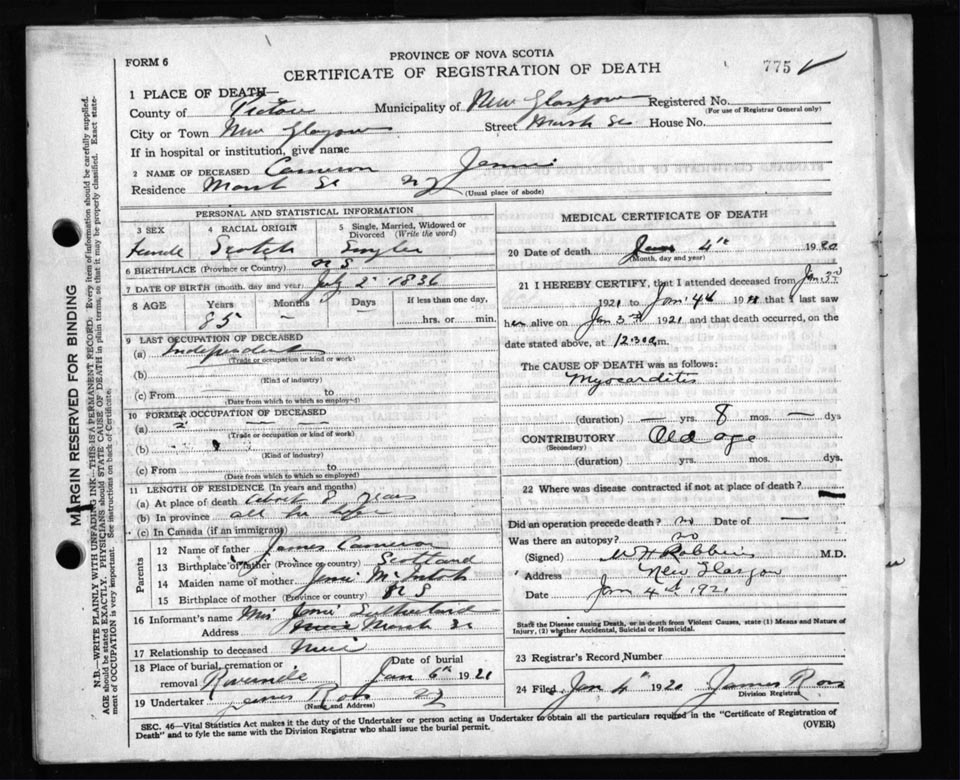 FORM 6
PROVINCE OF NOVA SCOTIA
CERTIFICATE OF REGISTRATION OF DEATH
775
1 PLACE OF DEATH—
County of Pictou Municipality of New Glasgow Registered No.
(For use of Registrar General only)
City or Town New Glasgow Street Marsh St House No.
If in hospital or institution, give name
2 NAME OF DECEASED Cameron Jennie
Residence Marsh St N G
(Usual place of abode)
PERSONAL AND STATISTICAL INFORMATION
3 SEX 4 RACIAL ORIGIN 5 Single, Married, Widowed or Divorced (Write the word)
Female Scotch Single
6 BIRTHPLACE (Province or Country) N S
7 DATE OF BIRTH (month, day and year) July 2 1836
8 AGE Years Months Days If less than one day,
85 — — hrs. or min.
9 LAST OCCUPATION OF DECEASED
(a) Independent
(Trade or occupation or kind of work)
(b)
(Kind of industry)
(c) From to
(Date from which to which so employed)
10 FORMER OCCUPATION OF DECEASED
(a) — —
(Trade or occupation or kind of work)
(b)
(Kind of industry)
(c) From to
(Date from which to which so employed)
11 LENGTH OF RESIDENCE (In years and months)
(a) At place of death about 8 years
(b) In province all her life
(c) In Canada (if an immigrant)
Parents
12 Name of father James Cameron
13 Birthplace of father (Province or country) Scotland
14 Maiden name of mother Jennie McIntosh
15 Birthplace of mother (Province or country) N S
16 Informant's name Mrs Sutherland
Address Marsh St
17 Relationship to deceased
18 Place of burial, cremation or removal Riverside Date of burial Jan 6th 1921
19 Undertaker James Ross N G
(Name and Address)
MEDICAL CERTIFICATE OF DEATH
20 Date of death Jan 4th 1920
(Month, day and year)
21 I HEREBY CERTIFY, that I attended deceased from Jan 3rd
1921 to Jan 4th 1921 that I last saw
her alive on Jan 3rd 1921 and that death occurred, on the
date stated above, at 12.30 a.m.
The CAUSE OF DEATH was as follows:
Myocarditis
(duration) — yrs. 8 mos. — dys
CONTRIBUTORY Old age
(Secondary)
(duration) yrs. mos. dys.
22 Where was disease contracted if not at place of death? —
Did an operation precede death? no Date of —
Was there an autopsy? no
(Signed) W H Robbins M.D.
Address New Glasgow
Date Jan 4th 1921
State the Disease causing Death, or in death from Violent Causes, state (1) Means and Nature of Injury, (2) whether Accidental, Suicidal or Homicidal.
23 Registrar's Record Number
24 Filed Jan 4th 1921 James Ross
Division Registrar
SEC. 46—Vital Statistics Act makes it the duty of the Undertaker or person acting as Undertaker to obtain all the particulars required in the "Certificate of Registration of
Death" and to fyle the same with the Division Registrar who shall issue the burial permit.
(OVER)
MARGIN RESERVED FOR BINDING
N.B.—WRITE PLAINLY WITH UNFADING INK—THIS IS A PERMANENT RECORD. Every item of information should be carefully supplied.
AGE should be stated EXACTLY. PHYSICIANS should STATE CAUSE OF DEATH in plain terms, so that it may be properly classified. Exact statement of OCCUPATION is very important. See instructions on back of Certificate.